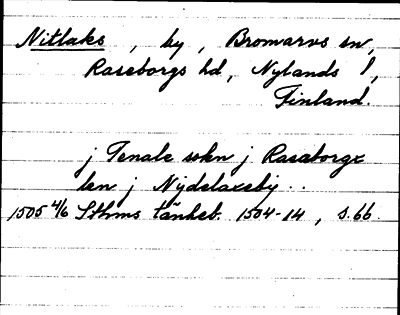 Nitlaks, by, Bromarvs sn,
Raseborgs hd, Nylands l,
Finland.
j Tenale sokn j Rasaborgx
len j Nydelaxeby..
1505 4/6 Sthms tänkeb. 1504-14, s.66.